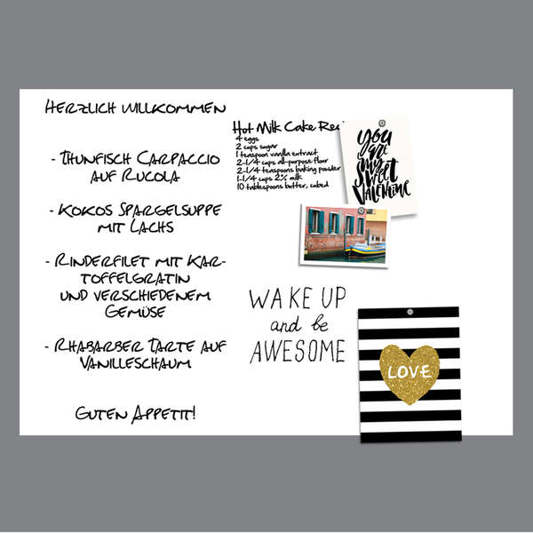 Herzlich willkommen
- Thunfisch Carpaccio
auf Rucola
- Kokos Spargelsuppe
mit Lachs
- Rinderfilet mit Kar-
toffelgratin
und verschiedenem
Gemüse
- Rhabarber Tarte auf
Vanilleschaum
Guten Appetit!
Hot Milk Cake Rec
4 eggs
2 cups sugar
1 teaspoon vanilla extract
2-1/4 cups all-purpose flour
2-1/4 teaspoons baking powder
1-1/4 cups 2% milk
10 tablespoons butter, cubed
you
are
my
sweet
Valentine
WAKE UP
and be
AWESOME
LOVE